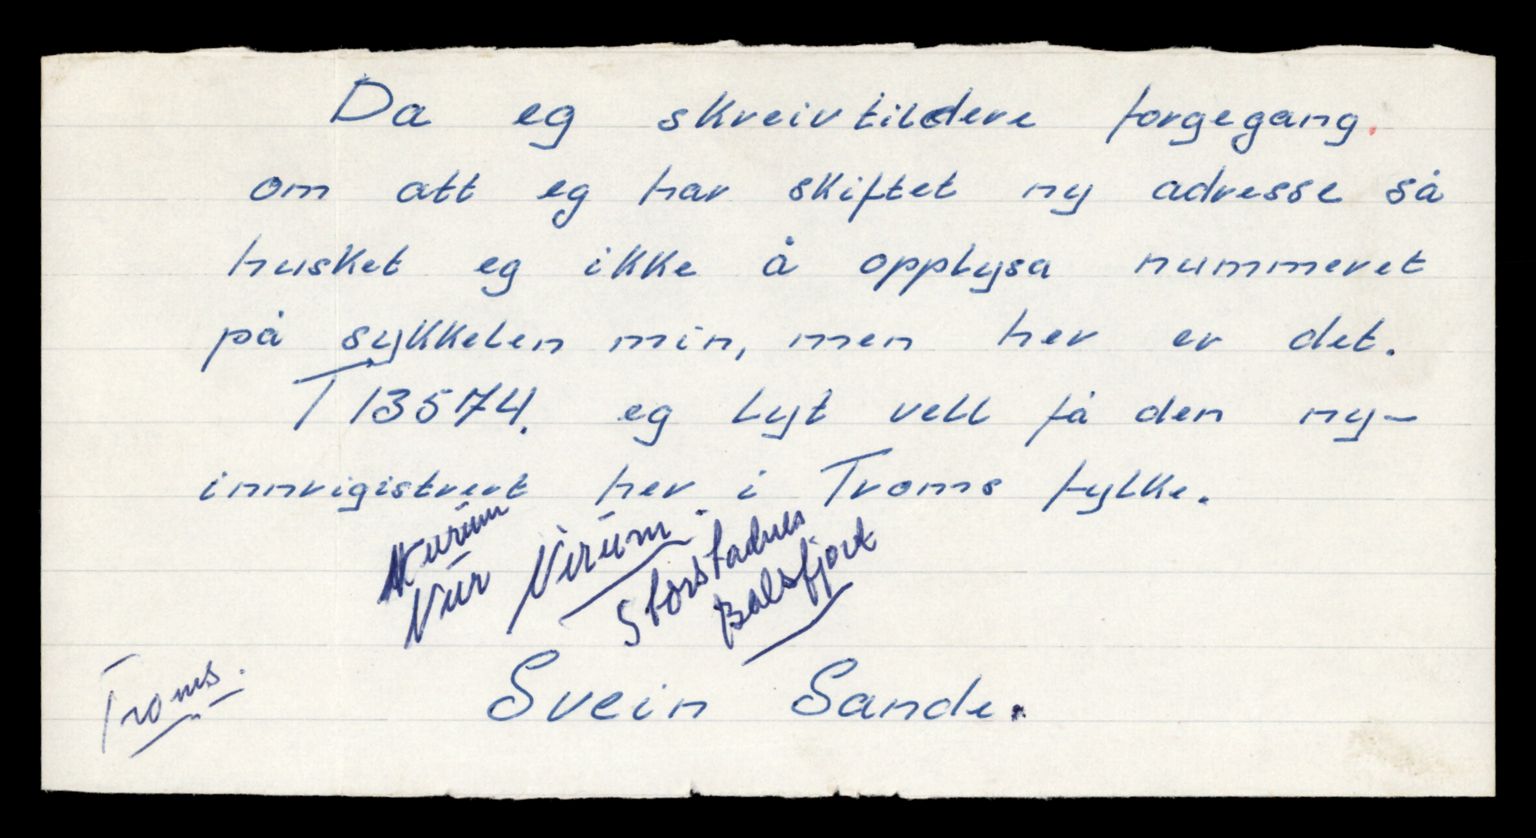 Da eg skreiv til dere forgegang.
om att eg har skiftet ny adresse så
husket eg ikke å opplysa nummeret
på sykkelen min, men her er det.
T 13574. eg lyt vell få den ny-
innrigistrert her i Troms fylke.
Storstadnes
Balsfjort
Troms.
Svein Sande.